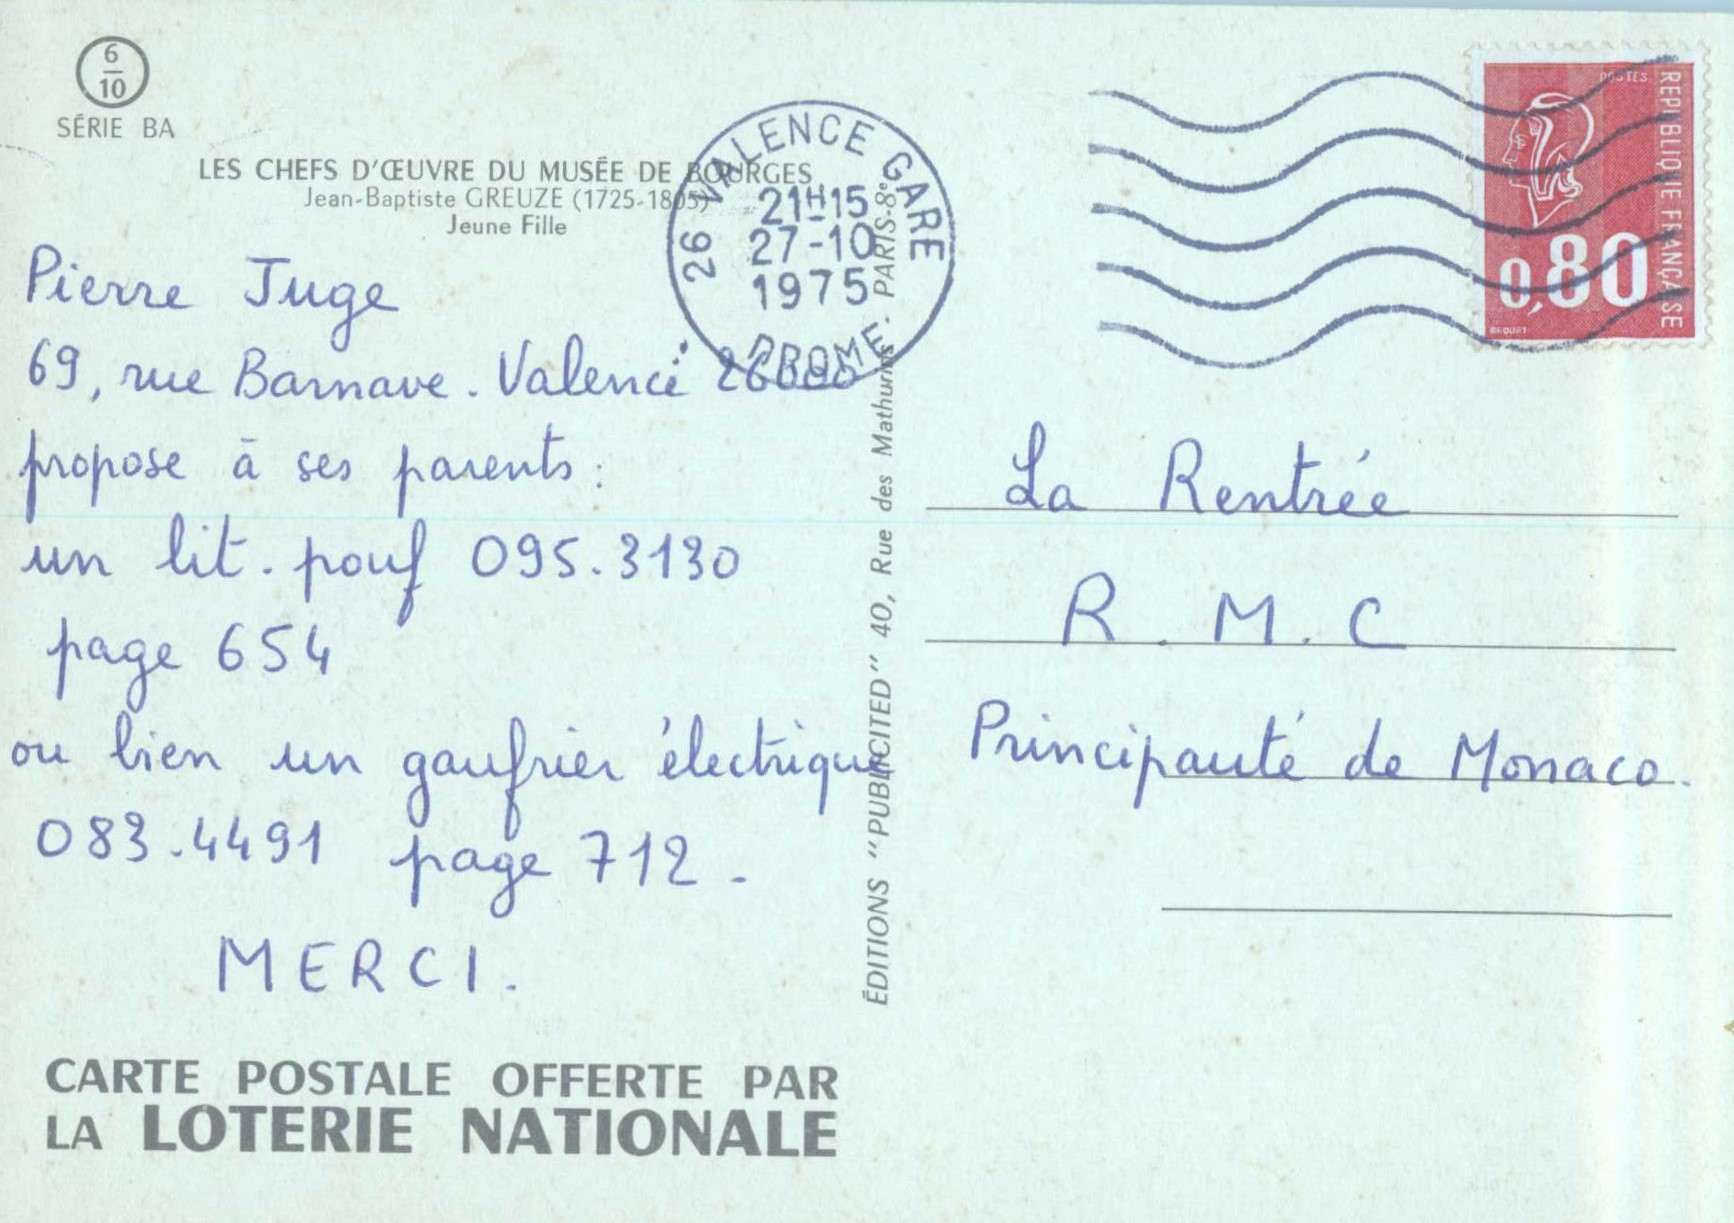 6
10
SÉRIE BA
LES CHEFS D'ŒUVRE DU MUSÉE DE BOURGES
Jean-Baptiste GREUZE (1725-1805)
Jeune Fille
Pierre Juge
69, rue Barnave. Valence 26000
propose à ses parents :
un lit. pouf 095.3130
page 654
ou bien un gaufrier électrique
083.4491 page 712.
MERCI.
CARTE POSTALE OFFERTE PAR
LA LOTERIE NATIONALE
ÉDITIONS "PUBLICITED" 40, Rue des Mathurins. PARIS-8e
26 VALENCE GARE
21H15
27-10
1975
DROME
POSTES
REPUBLIQUE FRANÇAISE
0,80
BEQUET
La Rentrée
R. M. C
Principauté de Monaco.